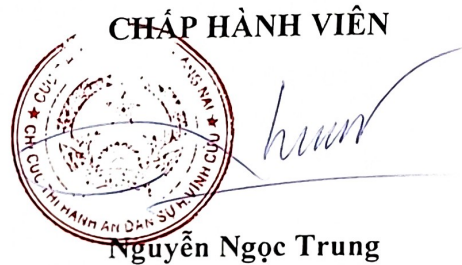 CHẤP HÀNH VIÊN
CỤC
NAI
CHI CỤC THI HÀNH ÁN DÂN SỰ H. VĨNH CỬU
Nguyễn Ngọc Trung